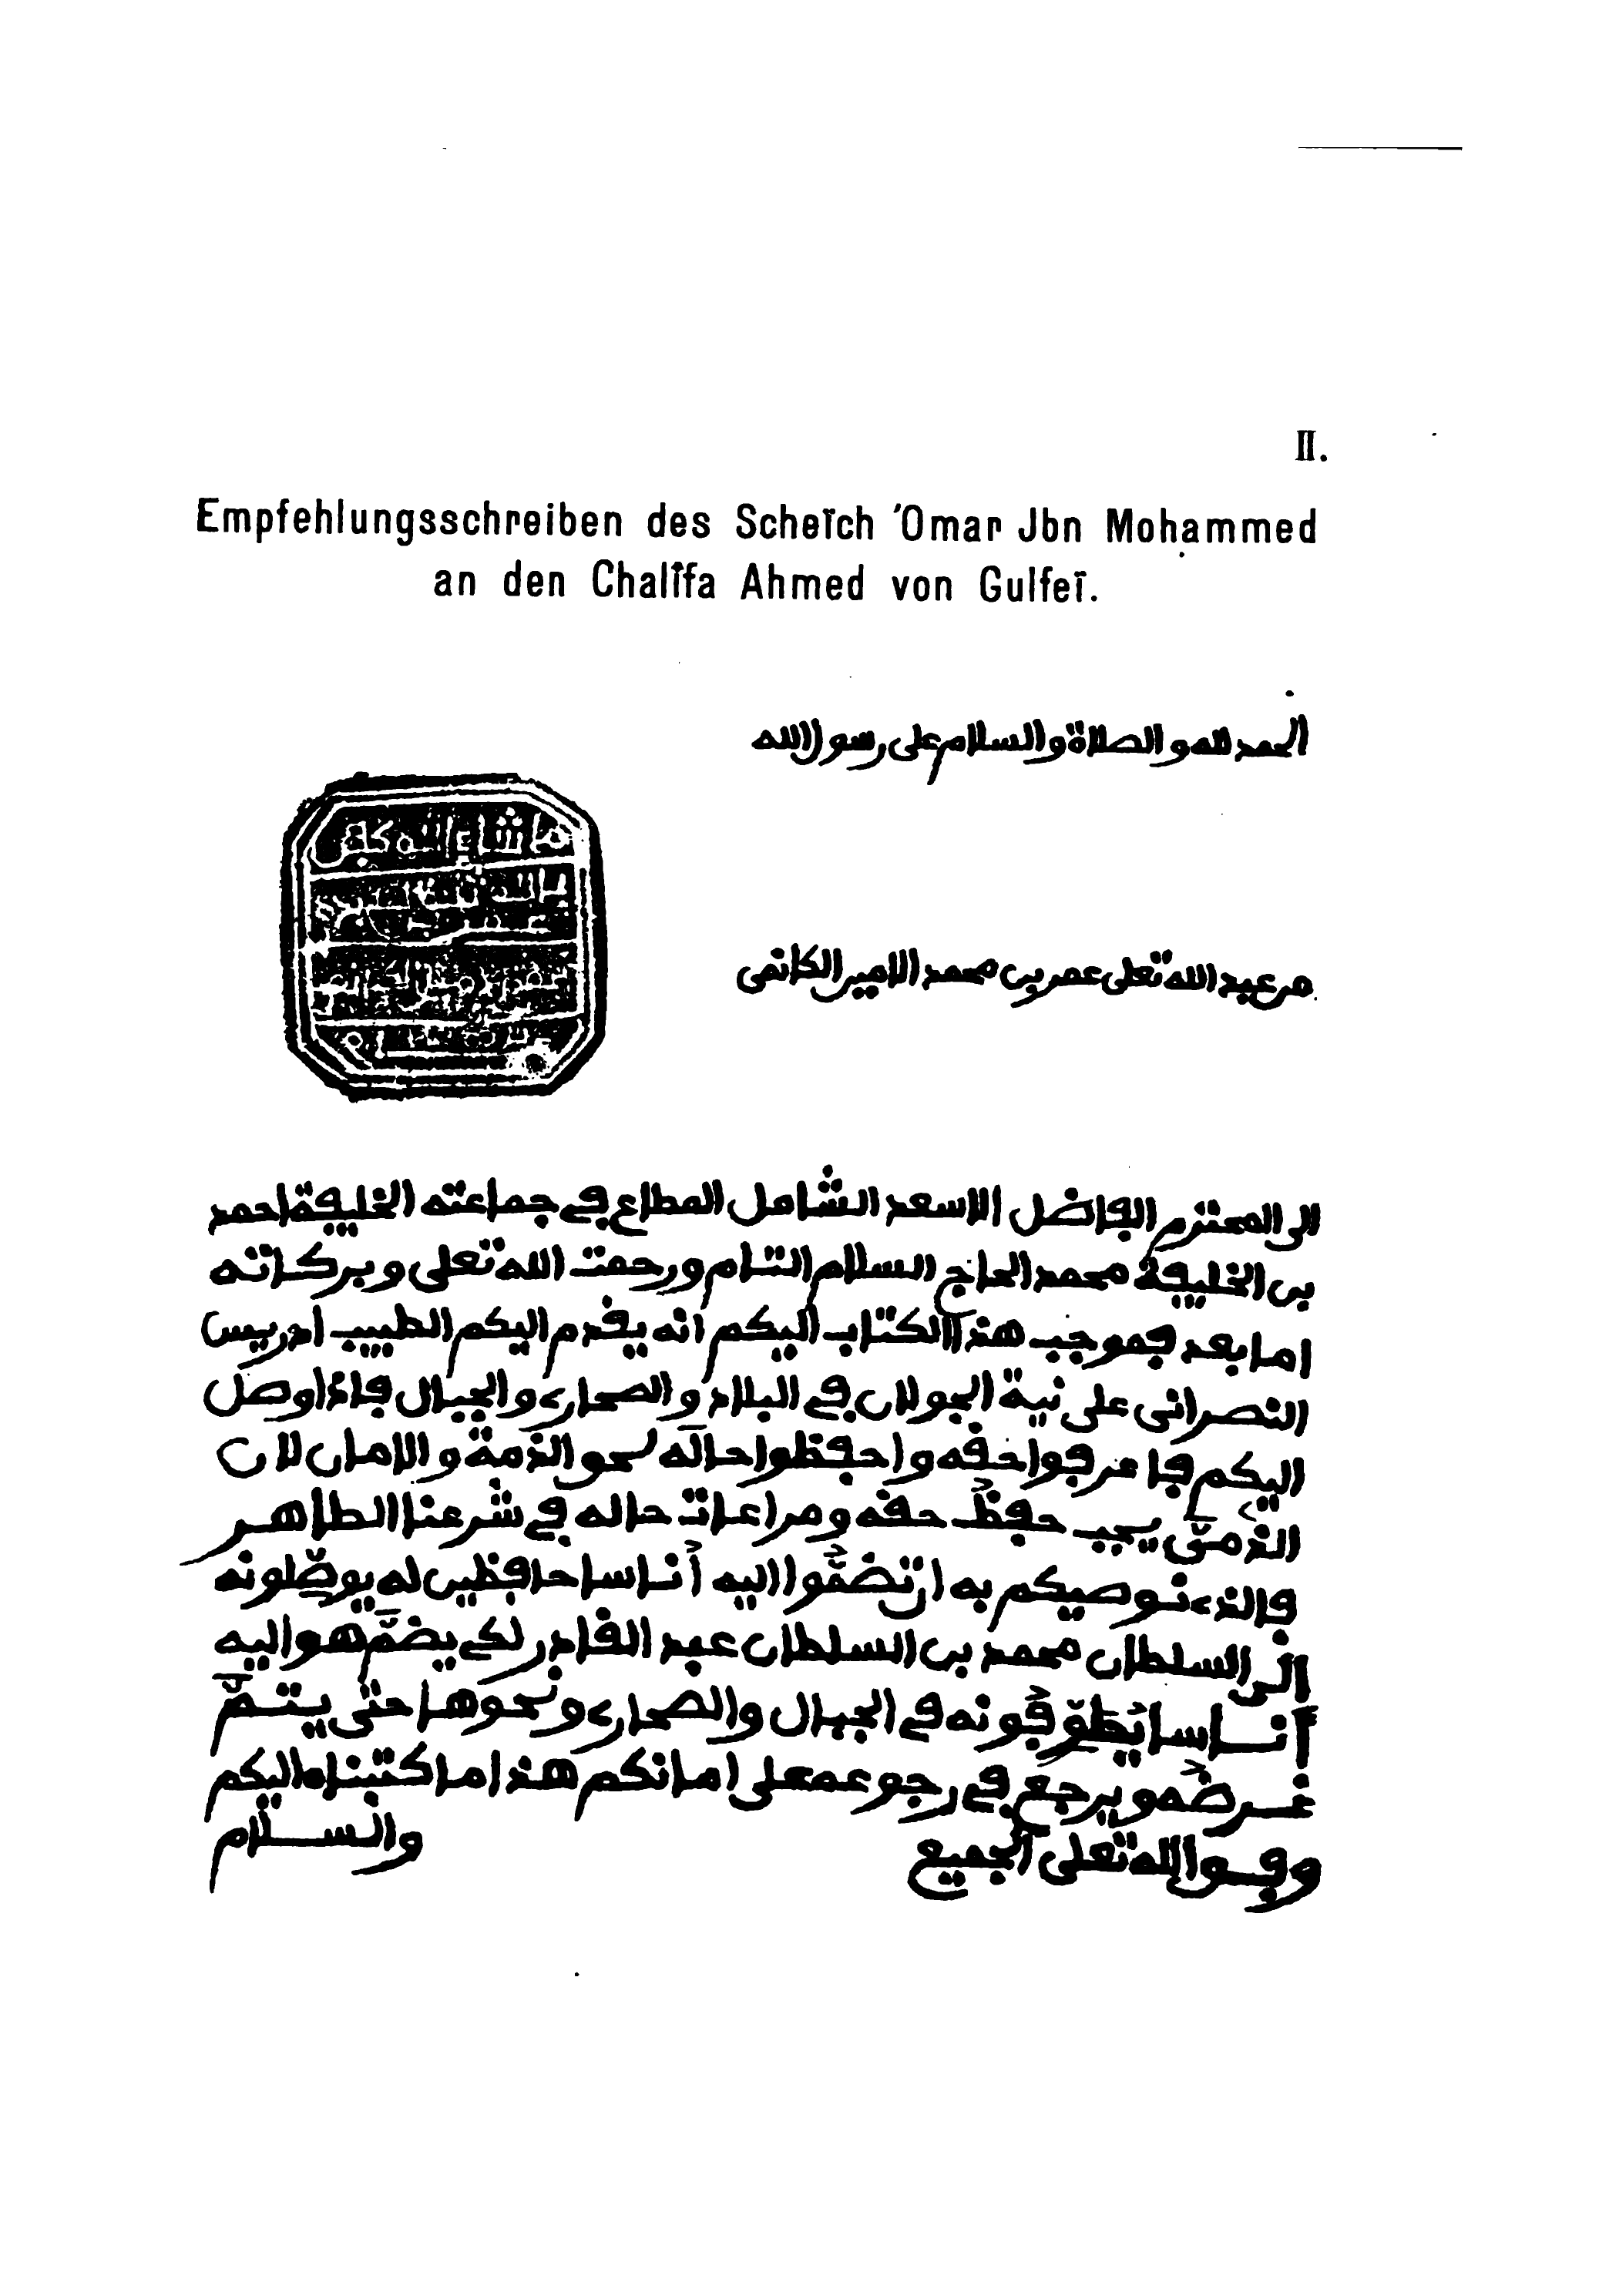 II.
Empfehlungsschreiben des Scheīch 'Omar Jbn Moḥammed
an den Chalīfa Ahmed von Gulfeī.
الحمد لله والصلاة والسلام على رسول الله
ما شاء الله
من عبد الله تعلى عمر بن محمد الامين الكانمى
الى المحترم الفاضل الاسعد الشامل المطاع في جماعته الخليفة احمد
بن الخليفة محمد الحاج السلام التام ورحمت الله تعلى وبركاته
اما بعد فموجب هذا الكتاب اليكم انه يقدم اليكم الطبيب ادريس
النصرانى على نية الجولان في البلاد والصحارى والجبال فاذا وصل
اليكم فاعرفوا حقه واحفظوا حاله لنحو الذمة والامان لان
الذمىّ يجب حفظ حقه ومراعات حاله في شرعنا الطاهر
فالذى نوصيكم به ان تضمّوا اليه أناسا حافظين له يوصّلونه
الى السلطان محمد بن السلطان عبد القادر لكي يضمّ هو اليه
أناسا يُطوّفُونه في الجبال والصحارى ونحوها حتى يتمّ
غرضه ويرجع في رجوعه على امانكم هذا ما كتبناه اليكم
وفق الله تعلى الجميع والسلام